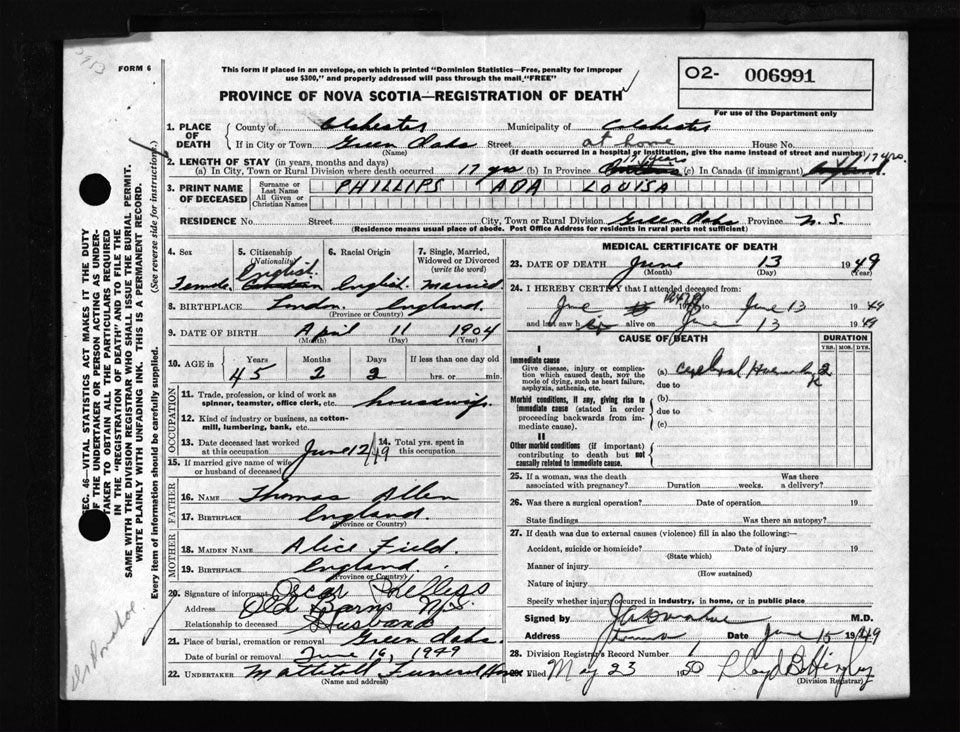 FORM 6
This form if placed in an envelope, on which is printed "Dominion Statistics—Free, penalty for improper
use $300," and properly addressed will pass through the mail "FREE"
O2- 006991
PROVINCE OF NOVA SCOTIA—REGISTRATION OF DEATH
For use of the Department only
1. PLACE OF DEATH
County of Colchester Municipality of Colchester
If in City or Town Green Oaks Street at home House No.
(Name) (If death occurred in a hospital or institution, give the name instead of street and number)
2. LENGTH OF STAY (in years, months and days)
(a) In City, Town or Rural Division where death occurred 17 yrs (b) In Province 17 years (c) In Canada (if immigrant) 17 yrs.
3. PRINT NAME OF DECEASED
Surname or Last Name PHILLIPS
All Given or Christian Names ADA LOUISA
RESIDENCE No. Street City, Town or Rural Division Green Oaks Province N.S.
(Residence means usual place of abode. Post Office Address for residents in rural parts not sufficient)
4. Sex
Female
5. Citizenship
(Nationality)
English
6. Racial Origin
English
7. Single, Married,
Widowed or Divorced
(write the word)
Married
8. BIRTHPLACE London England
(Province or Country)
9. DATE OF BIRTH April 11 1904
(Month) (Day) (Year)
10. AGE in
Years Months Days If less than one day old
45 2 2 hrs. or min.
OCCUPATION
11. Trade, profession, or kind of work as
spinner, teamster, office clerk, etc. housewife
12. Kind of industry or business, as cotton-
mill, lumbering, bank, etc.
13. Date deceased last worked
at this occupation June 12/49
14. Total yrs. spent in
this occupation
15. If married give name of wife
or husband of deceased
FATHER
16. NAME Thomas Allen
17. BIRTHPLACE England.
(Province or Country)
MOTHER
18. MAIDEN NAME Alice Field.
19. BIRTHPLACE England.
(Province or Country)
20. Signature of informant Oscar Phillips
Address Old Barns N.S.
Relationship to deceased Husband
21. Place of burial, cremation or removal Green Oaks.
Date of burial or removal June 16, 1949
22. UNDERTAKER Mattatall Funeral Home
(Name and address)
MEDICAL CERTIFICATE OF DEATH
23. DATE OF DEATH June 13 1949
(Month) (Day) (Year)
24. I HEREBY CERTIFY that I attended deceased from:
June to June 13 1949
and last saw h alive on June 13 1949
CAUSE OF DEATH
DURATION
YRS. MOS. DYS.
I
Immediate cause
Give disease, injury or compli-
cation which caused death, NOT the
mode of dying, such as heart failure,
asphyxia, asthenia, etc.
(a) Cerebral Haemorrhage 2
due to
Morbid conditions, if any, giving rise to
immediate cause (stated in order
proceeding backwards from immediate
cause).
(b)
due to
(c)
II
Other morbid conditions (if important)
contributing to death but not
causally related to immediate cause.
25. If a woman, was the death
associated with pregnancy? Duration weeks. Was there
a delivery?
26. Was there a surgical operation? Date of operation 19
State findings Was there an autopsy?
27. If death was due to external causes (violence) fill in also the following:—
Accident, suicide or homicide? Date of injury 19
(State which)
Manner of injury
(How sustained)
Nature of injury
Specify whether injury occurred in industry, in home, or in public place
Signed by M.D.
Address Date June 15 1949
28. Division Registrar's Record Number
Filed May 23 1950
(Division Registrar)
SEC. 46—VITAL STATISTICS ACT MAKES IT THE DUTY
OF THE UNDERTAKER OR PERSON ACTING AS UNDER-
TAKER TO OBTAIN ALL THE PARTICULARS REQUIRED
IN THE "REGISTRATION OF DEATH" AND TO FILE THE
SAME WITH THE DIVISION REGISTRAR WHO SHALL ISSUE THE BURIAL PERMIT.
WRITE PLAINLY WITH UNFADING INK. THIS IS A PERMANENT RECORD.
Every item of information should be carefully supplied. (See reverse side for instructions.)